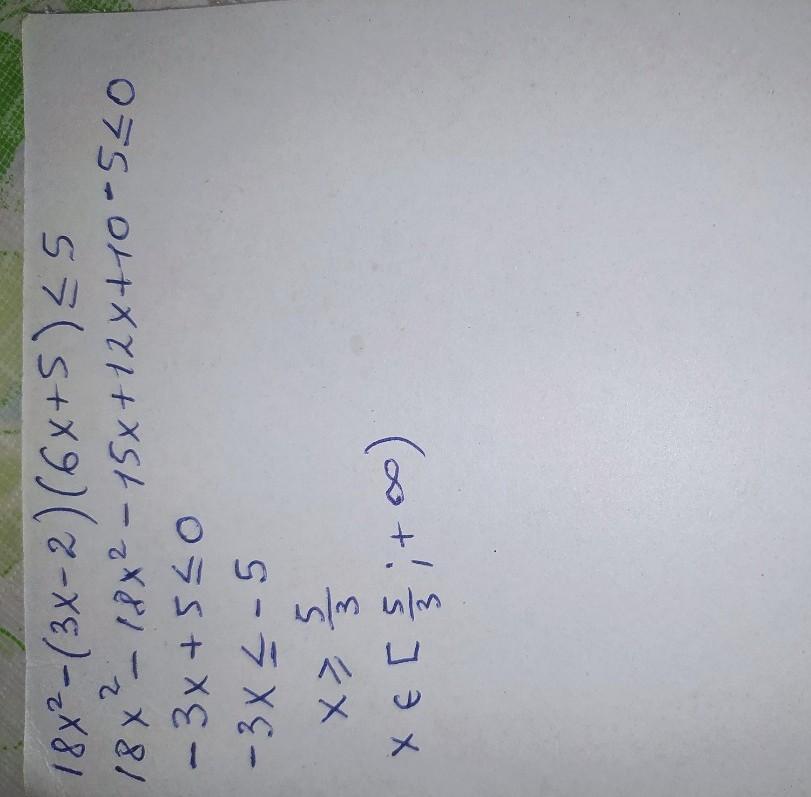 18x² - (3x - 2)(6x + 5) ≤ 5
18x² - 18x² - 15x + 12x + 10 - 5 ≤ 0
-3x + 5 ≤ 0
-3x ≤ -5
x ⩾ 5/3
x ∈ [5/3; +∞)